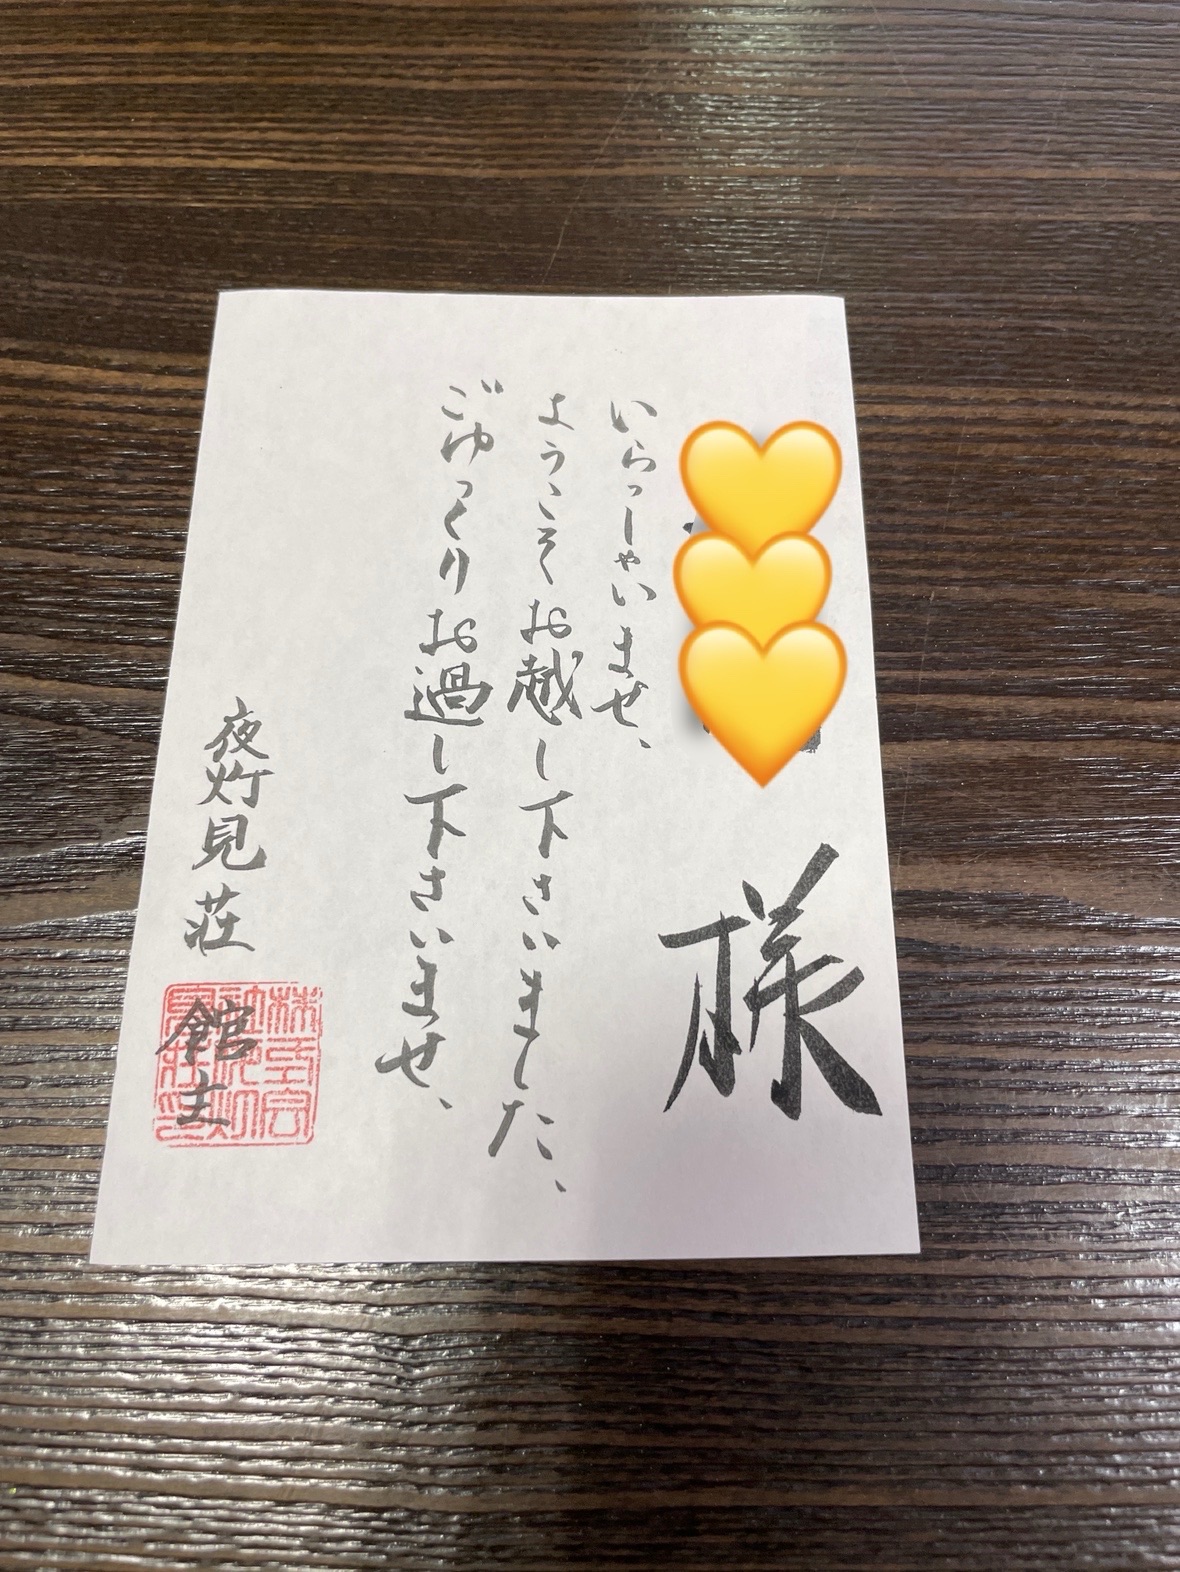 様
いらっしゃいませ、
ようこそお越し下さいました、
ごゆっくりお過し下さいませ、
夜灯見荘
館主
株式会社夜灯見荘印